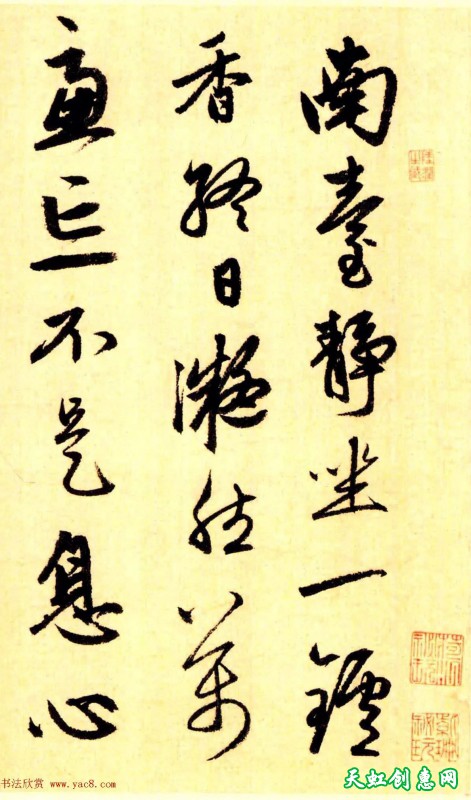 南臺靜坐一鑪
香終日凝然萬
慮忘不是息心
书法欣赏 www.yac8.com
天虹创惠网